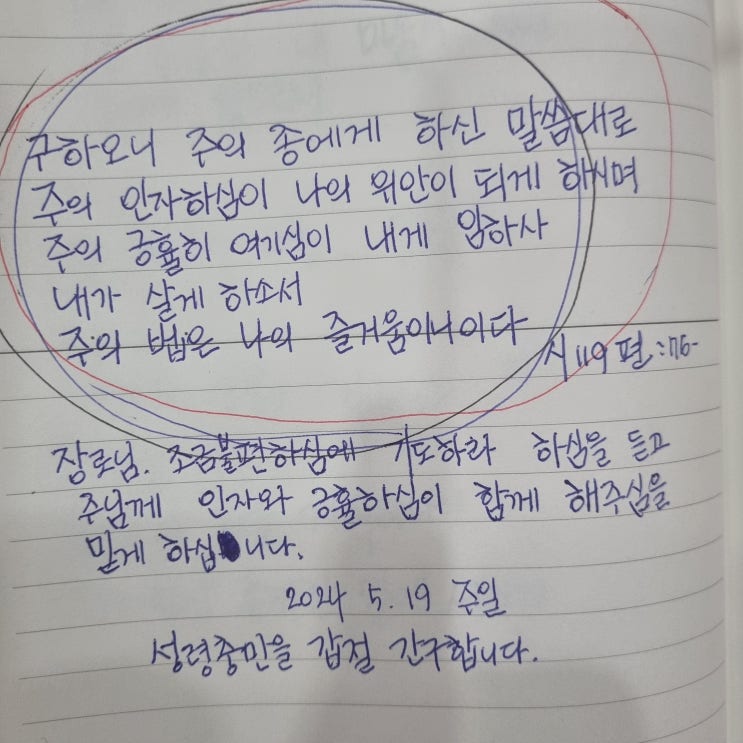 구하오니 주의 종에게 하신 말씀대로
주의 인자하심이 나의 위안이 되게 하시며
주의 긍휼히 여기심이 내게 임하사
내가 살게 하소서
주의 법은 나의 즐거움이니이다
시 119 편:76-
장로님. 조금불편하심에 기도하라 하심을 듣고
주님께 인자와 긍휼하심이 함께 해주심을
믿게 하십니다.
2024 5. 19 주일
성령충만을 갑절 간구합니다.